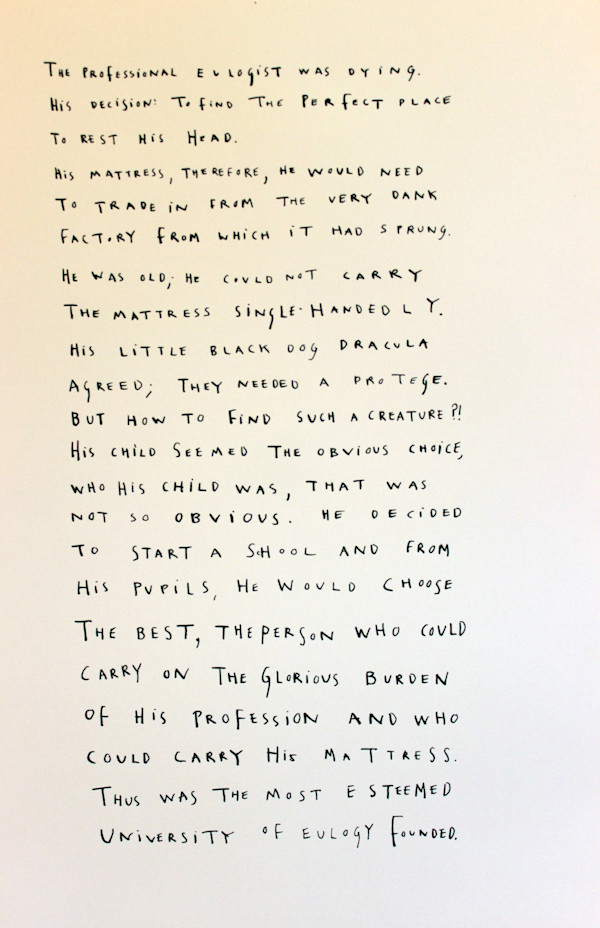 THE PROFESSIONAL EULOGIST WAS DYING.
HIS DECISION: TO FIND THE PERFECT PLACE
TO REST HIS HEAD.
HIS MATTRESS, THEREFORE, HE WOULD NEED
TO TRADE IN FROM THE VERY DANK
FACTORY FROM WHICH IT HAD SPRUNG.
HE WAS OLD; HE COULD NOT CARRY
THE MATTRESS SINGLE-HANDEDLY.
HIS LITTLE BLACK DOG DRACULA
AGREED; THEY NEEDED A PROTEGE.
BUT HOW TO FIND SUCH A CREATURE?!
HIS CHILD SEEMED THE OBVIOUS CHOICE,
WHO HIS CHILD WAS, THAT WAS
NOT SO OBVIOUS. HE DECIDED
TO START A SCHOOL AND FROM
HIS PUPILS, HE WOULD CHOOSE
THE BEST, THE PERSON WHO COULD
CARRY ON THE GLORIOUS BURDEN
OF HIS PROFESSION AND WHO
COULD CARRY HIS MATTRESS.
THUS WAS THE MOST ESTEEMED
UNIVERSITY OF EULOGY FOUNDED.